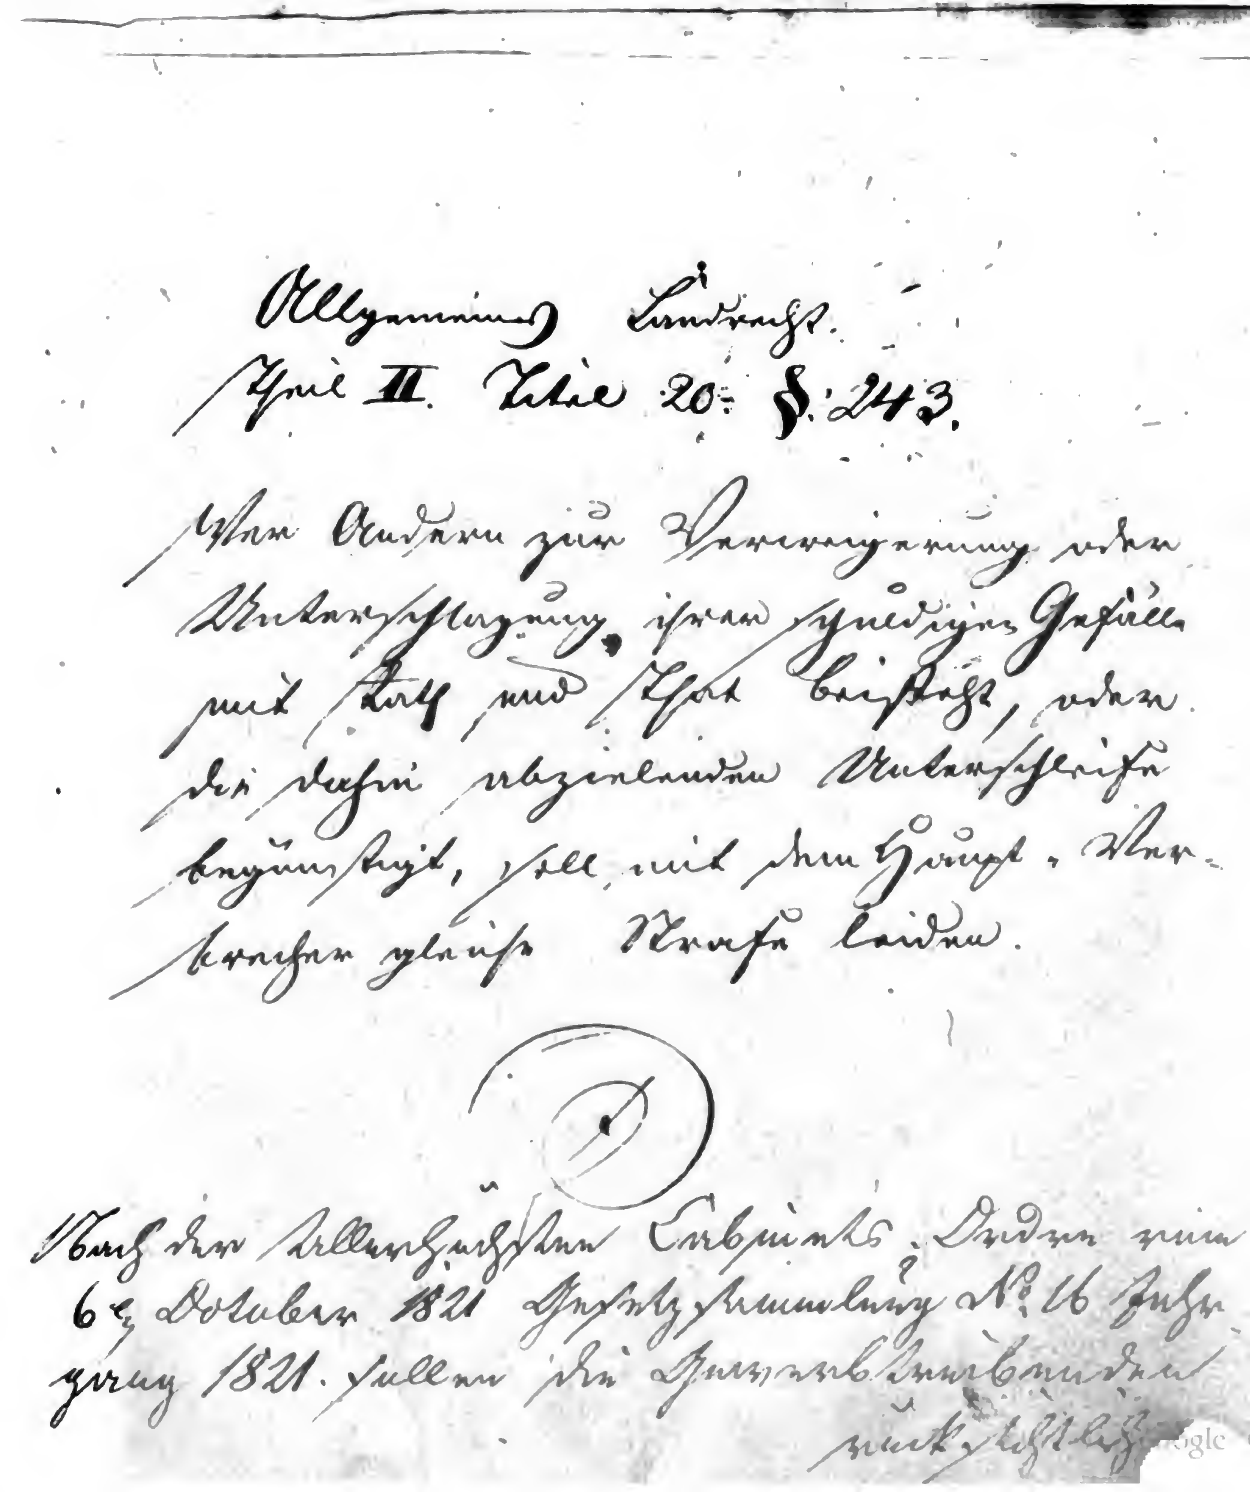 Allgemeines Landrecht.
Theil II. Titel 20. §. 243.
Wer Andern zur Verweigerung oder
Unterschlagung ihrer schuldigen Gefälle
mit Rath und That beisteht, oder
die dahin abzielenden Unterschleife
begünstigt, soll mit dem Haupt-Ver-
brecher gleiche Strafe leiden.
Nach der Allerhöchsten Cabinets-Ordre vom
6 October 1821 Gesetzsammlung No. 16 Jahr-
gang 1821. sollen die Gewerbtreibenden
rücksichtlich